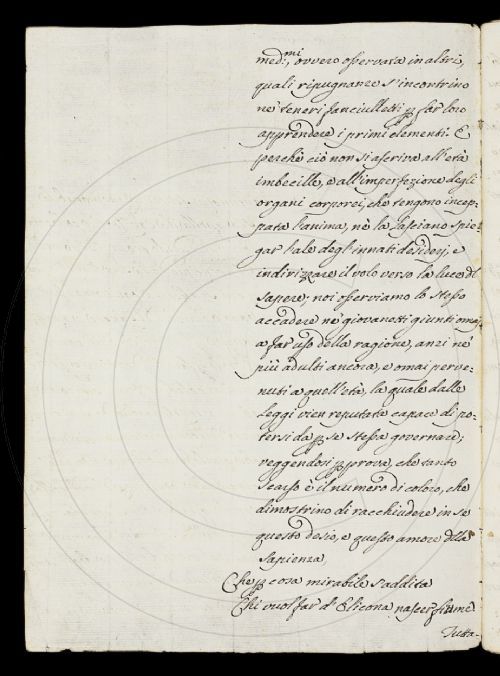 med.mi, ovvero osservata in altri,
quali ripugnanze s'incontrino
ne' teneri fanciulletti p far loro
apprendere i primi elementi. E
perchè ciò non si ascriva all'età
imbecille, e all'imperfezione degli
organi corporei, che tengono incep=
pata l'anima, nè la lasciano spie=
gar l'ale degl'innati desiderj, e
indirizzare il volo verso la luce del
sapere; noi osserviamo lo stesso
accadere ne' giovanetti giunti omai
a far uso della ragione, anzi ne'
più adulti ancora, e omai perve=
nuti a quell'età, la quale dalle
Leggi vien reputata capace di po=
tersi da p se stessa governare;
veggendosi p prova, che tanto
scarso è il numero di coloro, che
dimostrino di racchiudere in se
questo desio, e questo amore della
sapienza,
Che p cosa mirabile s'addita
Chi vuol far d'Elicona nascer fiume.
Tutta=